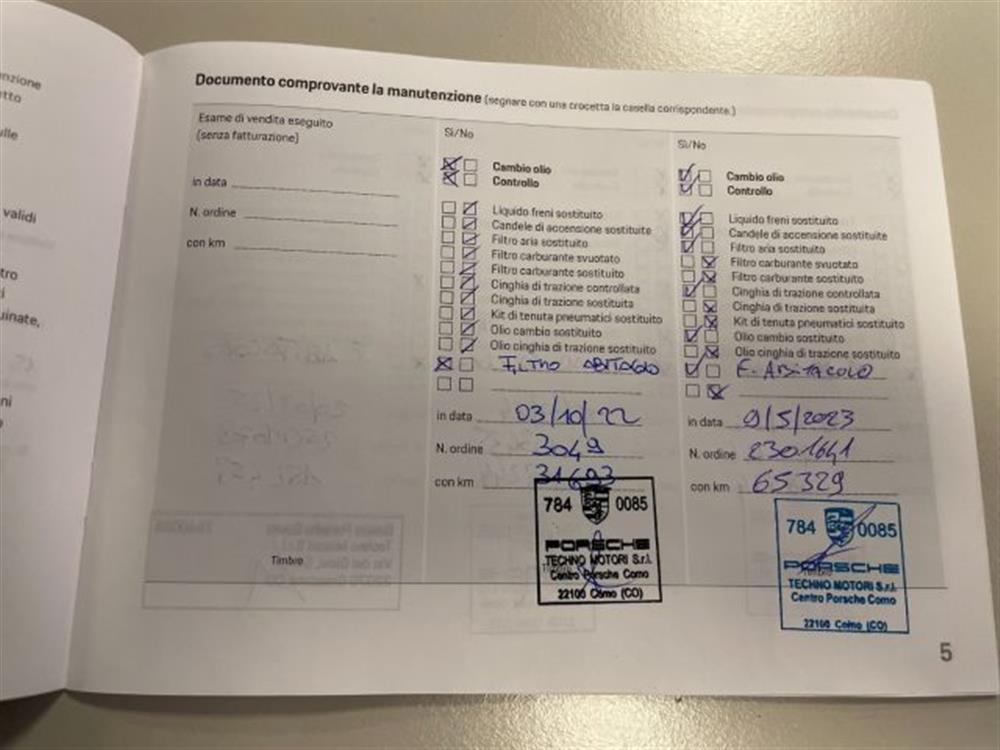 nzione
etto
ulle
validi
tro
i
uinate,
ni
Documento comprovante la manutenzione (segnare con una crocetta la casella corrispondente.)
Esame di vendita eseguito
(senza fatturazione)
in data
N. ordine
con km
Timbro
Sì/No
Cambio olio
Controllo
Liquido freni sostituito
Candele di accensione sostituite
Filtro aria sostituito
Filtro carburante svuotato
Filtro carburante sostituito
Cinghia di trazione controllata
Cinghia di trazione sostituita
Kit di tenuta pneumatici sostituito
Olio cambio sostituito
Olio cinghia di trazione sostituito
FILTRO ABITACOLO
in data 03/10/22
N. ordine 3049
con km 31693
784 0085
PORSCHE
TECHNO MOTORI S.r.l.
Centro Porsche Como
22100 Como (CO)
Sì/No
Cambio olio
Controllo
Liquido freni sostituito
Candele di accensione sostituite
Filtro aria sostituito
Filtro carburante svuotato
Filtro carburante sostituito
Cinghia di trazione controllata
Cinghia di trazione sostituita
Kit di tenuta pneumatici sostituito
Olio cambio sostituito
Olio cinghia di trazione sostituito
F. ABITACOLO
in data 9/5/2023
N. ordine 2301641
con km 65329
784 0085
PORSCHE
TECHNO MOTORI S.r.l.
Centro Porsche Como
22100 Como (CO)
5